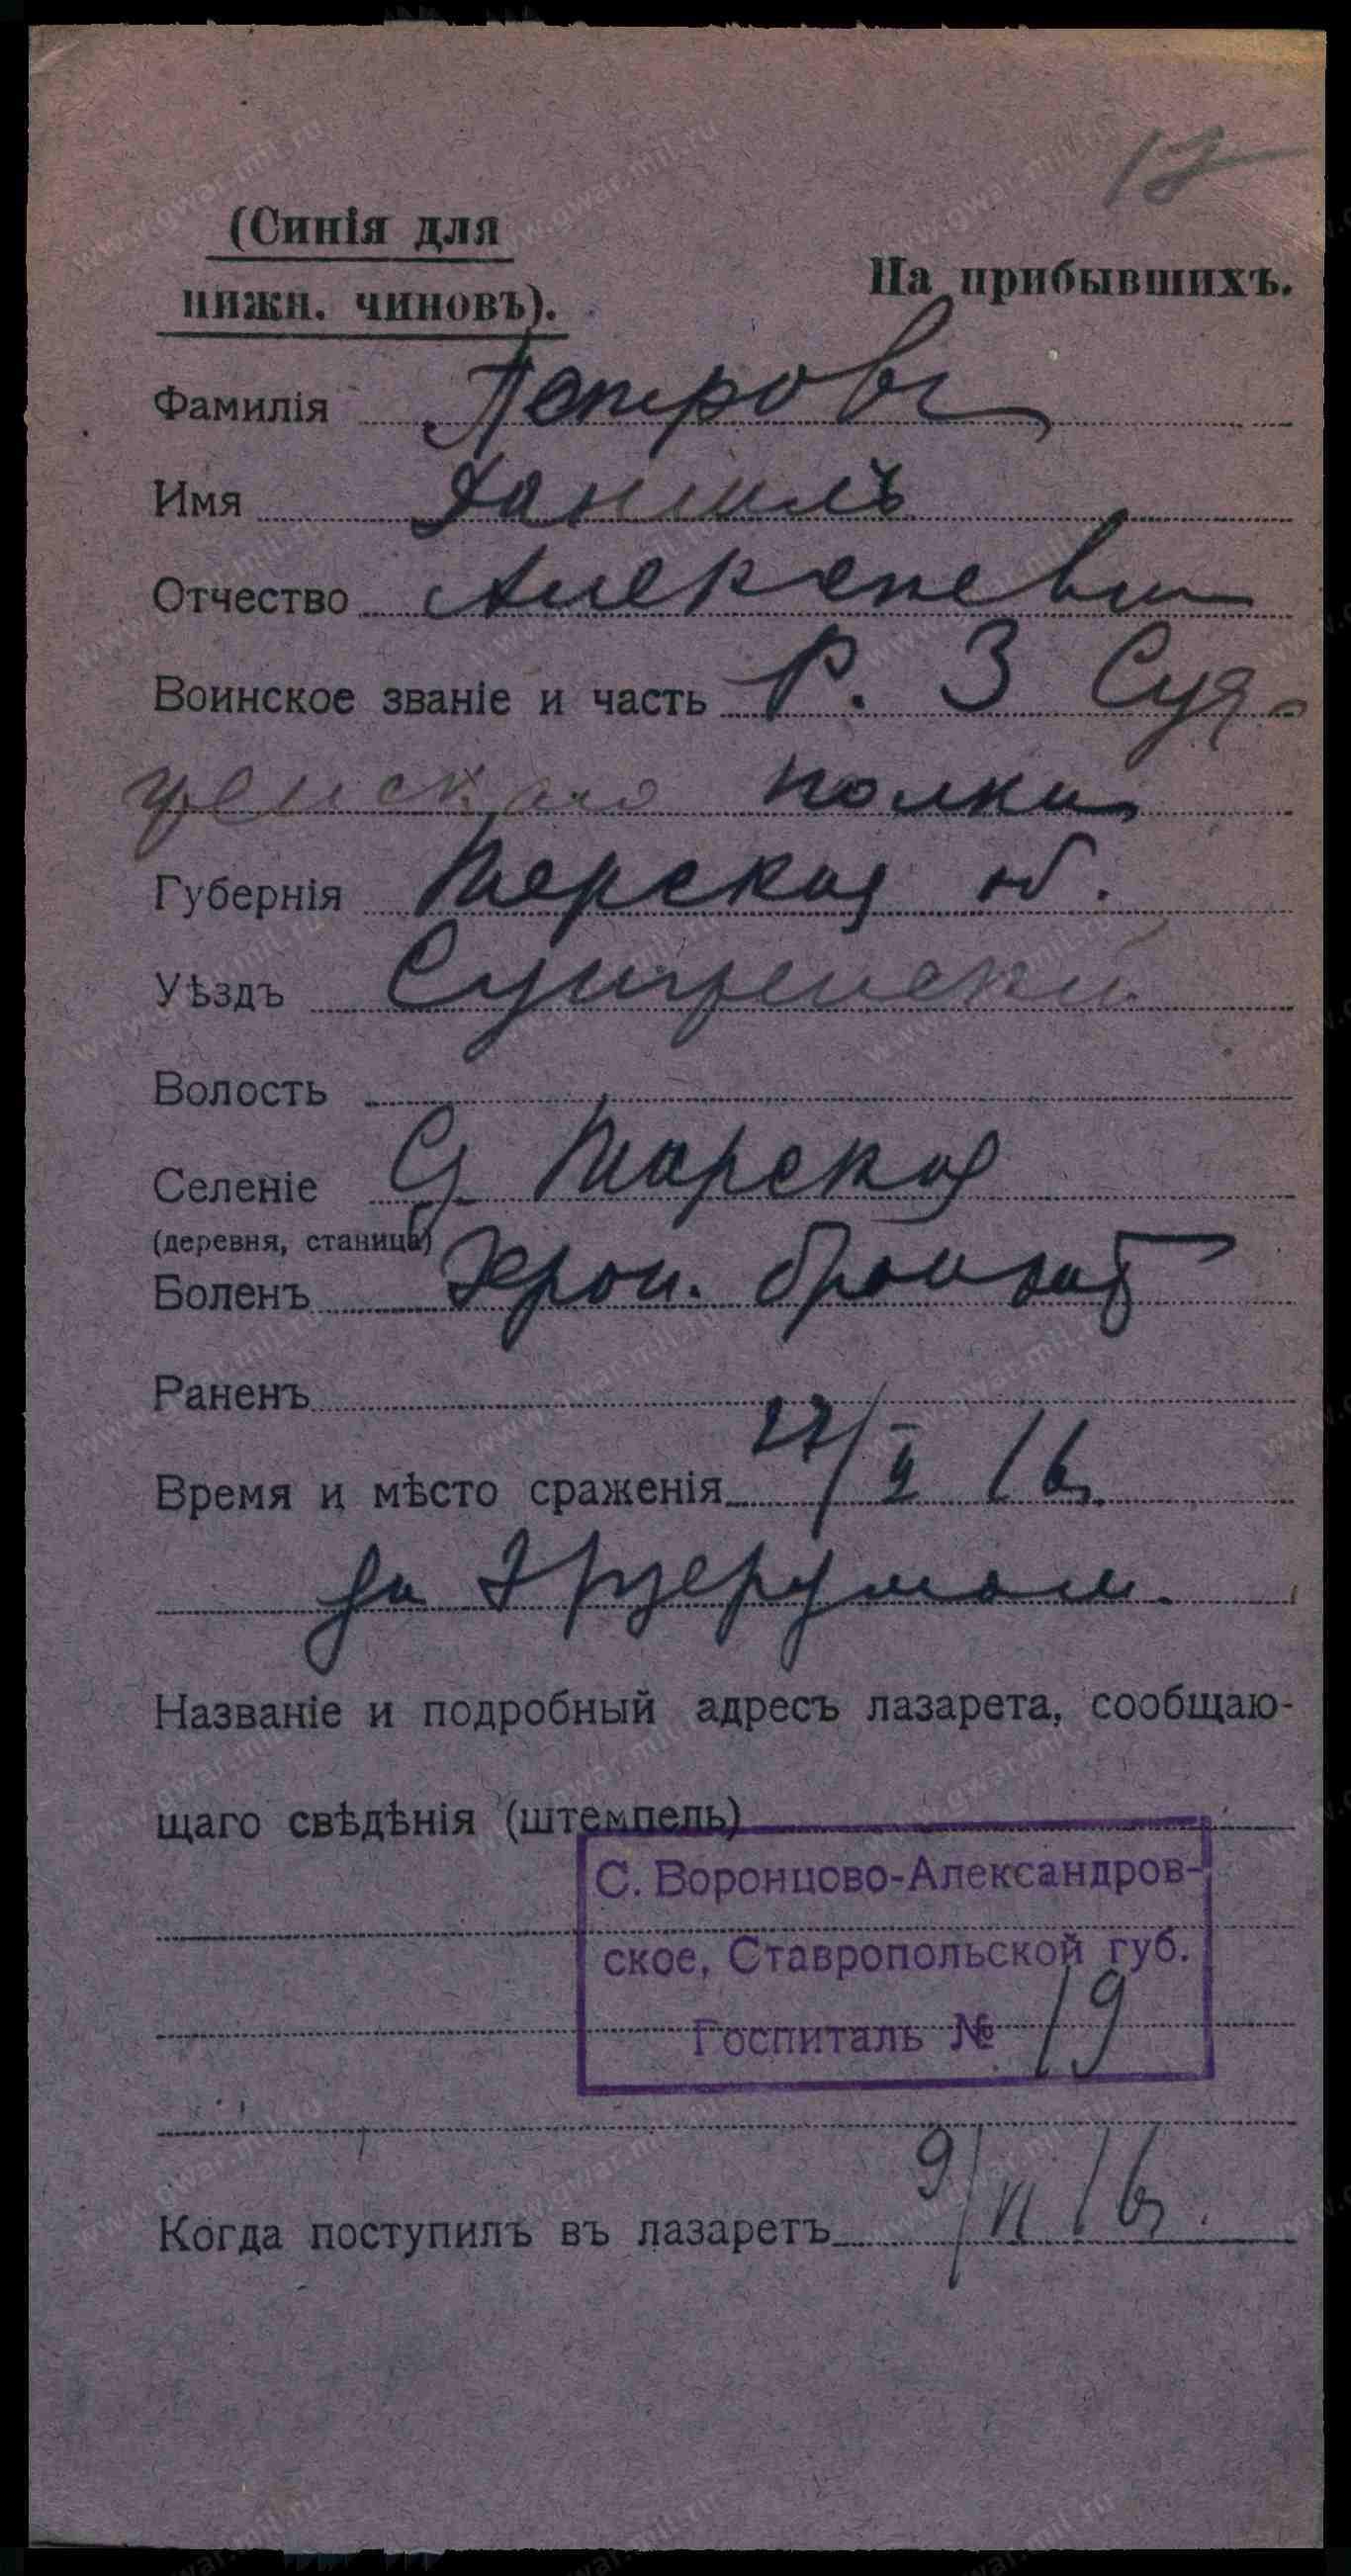 17
(Синія для
нижн. чиновъ).
На прибывшихъ.
Фамилія Петровъ
Имя Даниилъ
Отчество
Воинское званіе и часть Р. 3
полка
Губернія Терская об.
Уѣздъ Сунженскій
Волость
Селеніе Тарская
(деревня, станица)
Боленъ Хрон. бронхит
Раненъ
Время и мѣсто сраженія 16
за Эрзерумом.
Названіе и подробный адресъ лазарета, сообщаю-
щаго свѣдѣнія (штемпель)
С. Воронцово-Александров-
ское, Ставропольской губ.
Госпиталь № 19
Когда поступилъ въ лазаретъ 9/VI 16